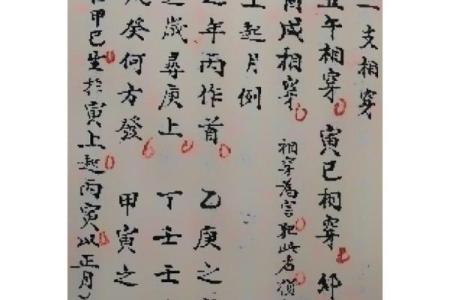 支相穿
丑午相穿 寅巳相穿 卯
酉戌相穿 相穿為害犯此者損
上起月例
之年丙作首 乙庚之
之歲尋庚上 丁壬壬
戊癸何方發 甲寅之
甲己生於寅上起丙寅以正月